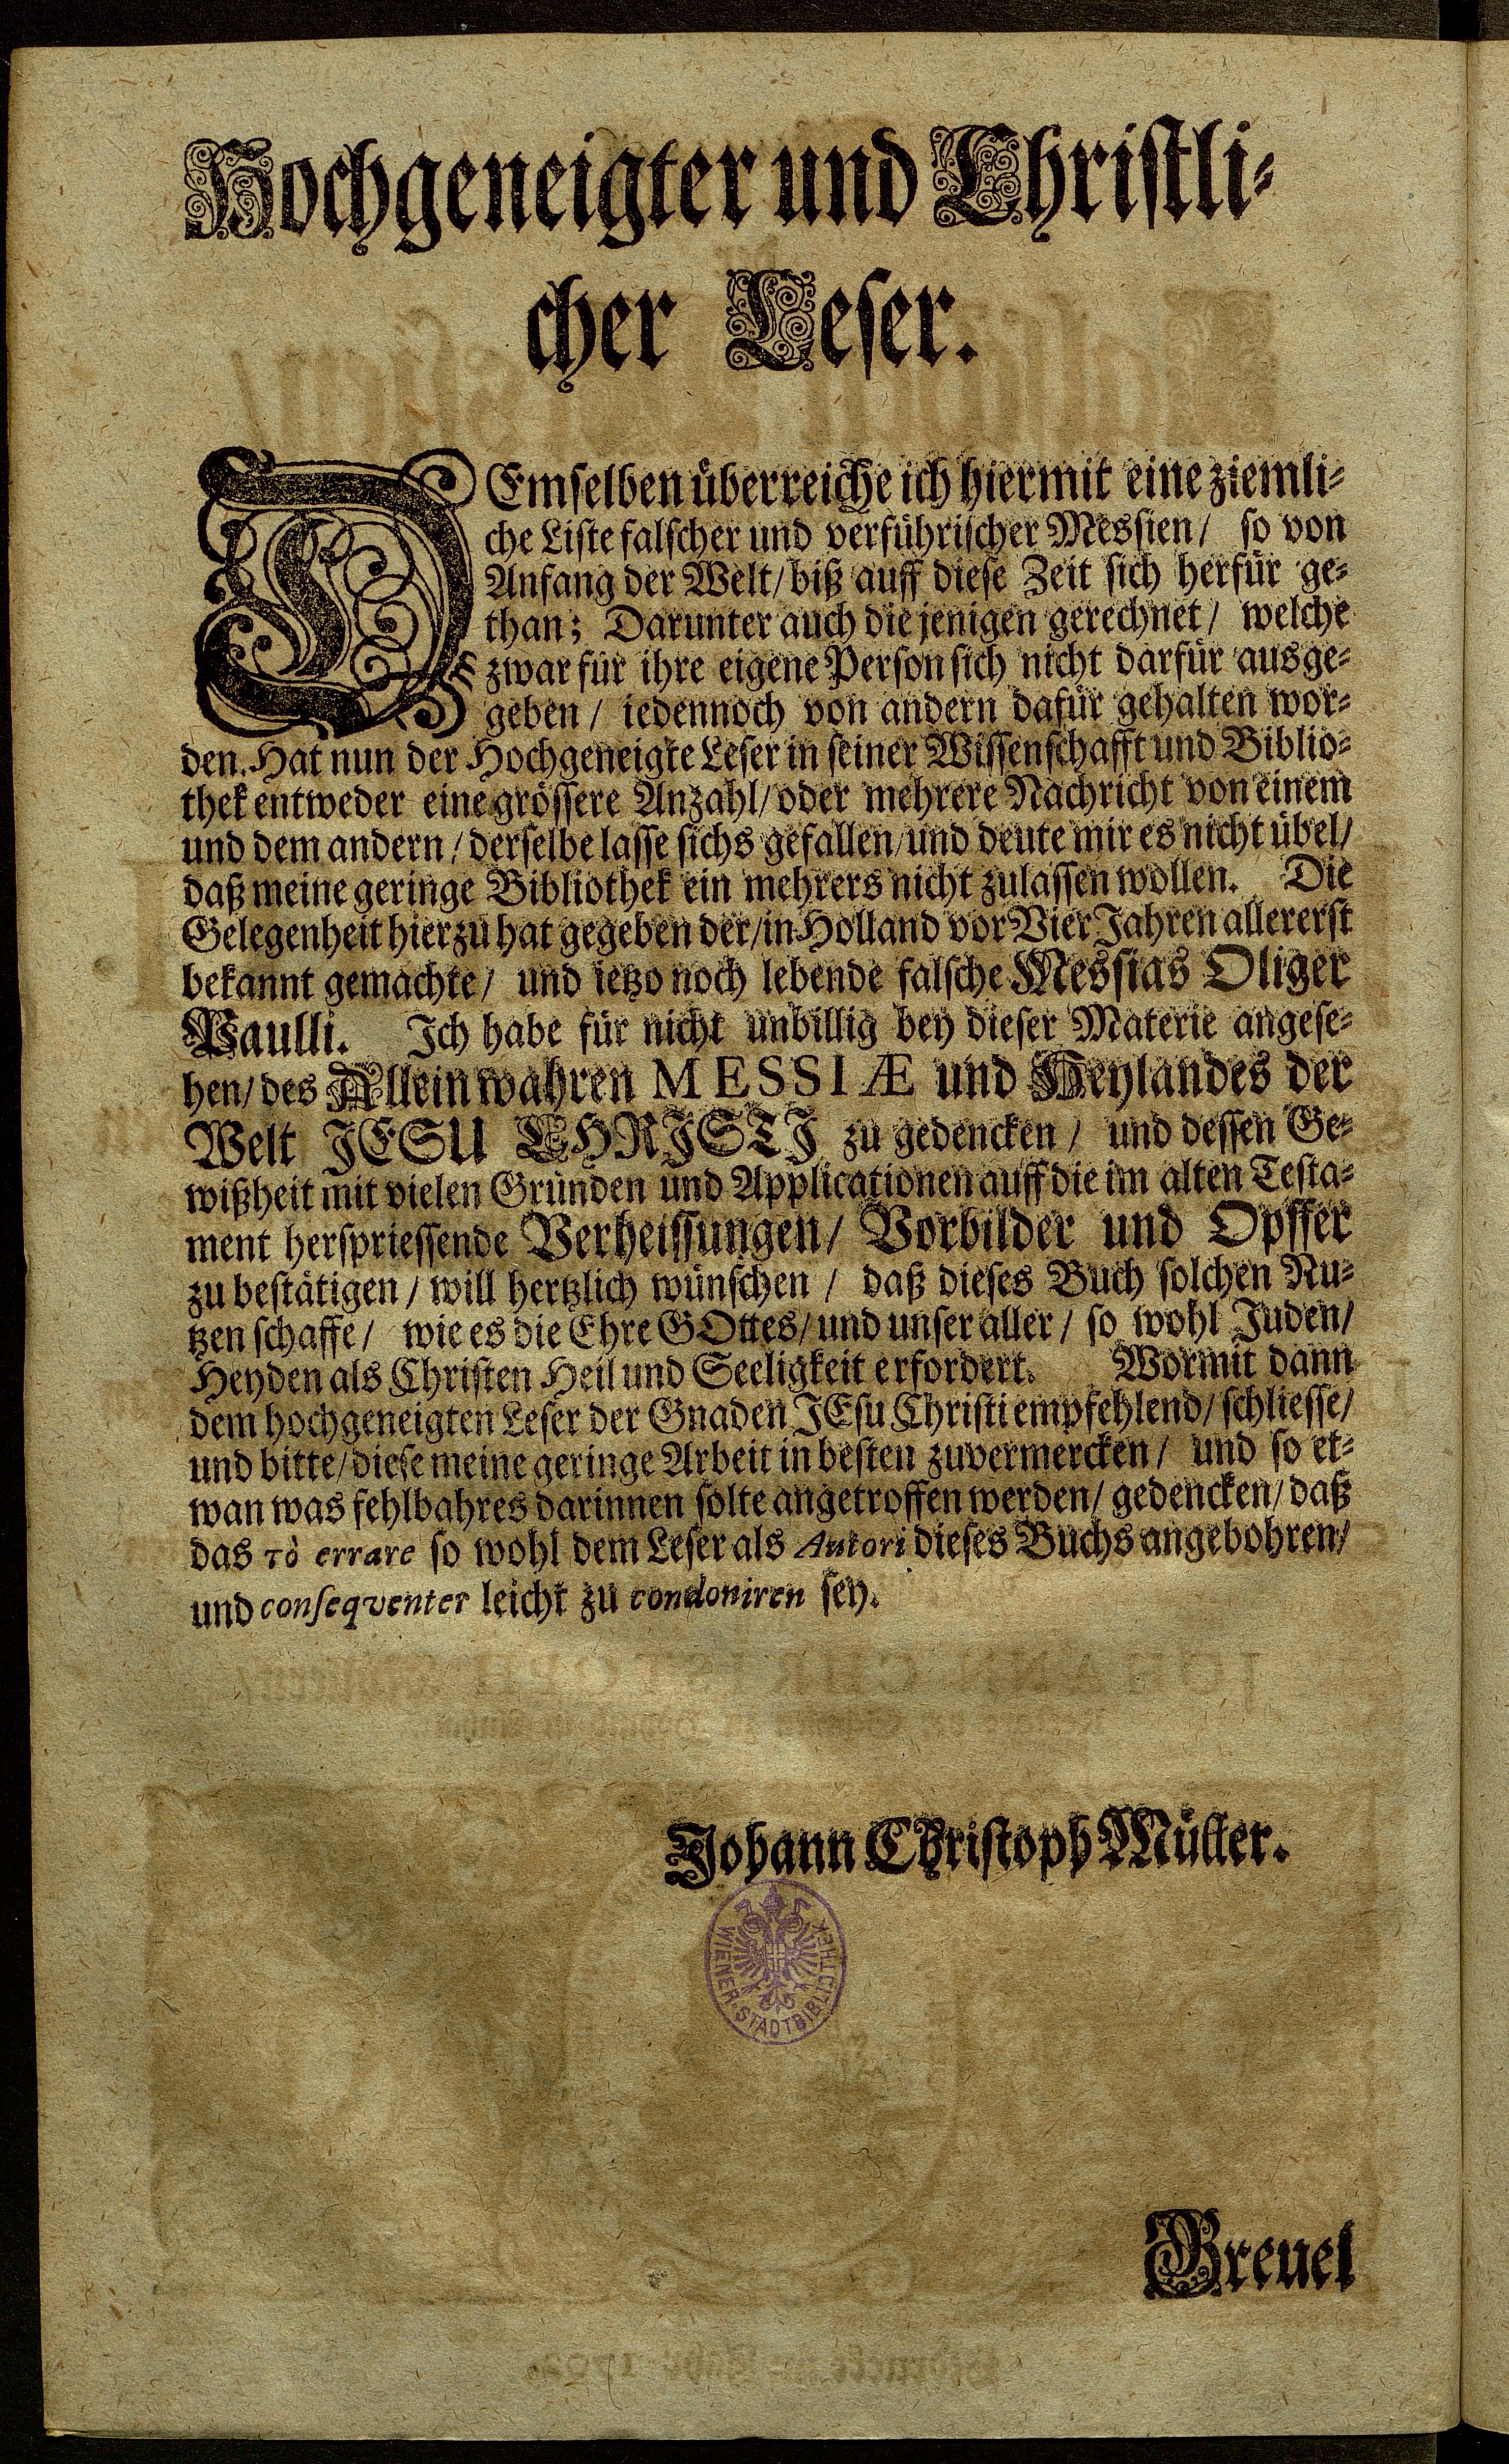 Hochgeneigter und Christli-
cher Leser.
DEmselben überreiche ich hiermit eine ziemli-
che Liste falscher und verführischer Messien/ so von
Anfang der Welt/ biß auff diese Zeit sich herfür ge-
than; Darunter auch die jenigen gerechnet/ welche
zwar für ihre eigene Person sich nicht darfür ausge-
geben/ iedennoch von andern dafür gehalten wor-
den. Hat nun der Hochgeneigte Leser in seiner Wissenschafft und Biblio-
thek entweder eine grössere Anzahl/ oder mehrere Nachricht von einem
und dem andern/ derselbe lasse sichs gefallen/ und deute mir es nicht übel/
daß meine geringe Bibliothek ein mehrers nicht zulassen wollen. Die
Gelegenheit hierzu hat gegeben der/ in Holland vor Vier Jahren allererst
bekannt gemachte/ und ietzo noch lebende falsche Messias Oliger
Paulli. Ich habe für nicht unbillig bey dieser Materie angese-
hen/ des Allein wahren MESSIÆ und Heylandes der
Welt JESU CHRISTI zu gedencken/ und dessen Ge-
wißheit mit vielen Gründen und Applicationen auff die im alten Testa-
ment herspriessende Verheissungen/ Vorbilder und Opffer
zu bestätigen/ will hertzlich wünschen/ daß dieses Buch solchen Nu-
tzen schaffe/ wie es die Ehre GOttes/ und unser aller/ so wohl Juden/
Heyden als Christen Heil und Seeligkeit erfordert. Wormit dann
dem hochgeneigten Leser der Gnaden JEsu Christi empfehlend/ schliesse/
und bitte/ diese meine geringe Arbeit in besten zuvermercken/ und so et-
wan was fehlbahres darinnen solte angetroffen werden/ gedencken/ daß
das τὸ errare so wohl dem Leser als Autori dieses Buchs angebohren/
und conseqventer leicht zu condoniren sey.
Johann Christoph Müller.
WIENER STADTBIBLIOTHEK
Greuel